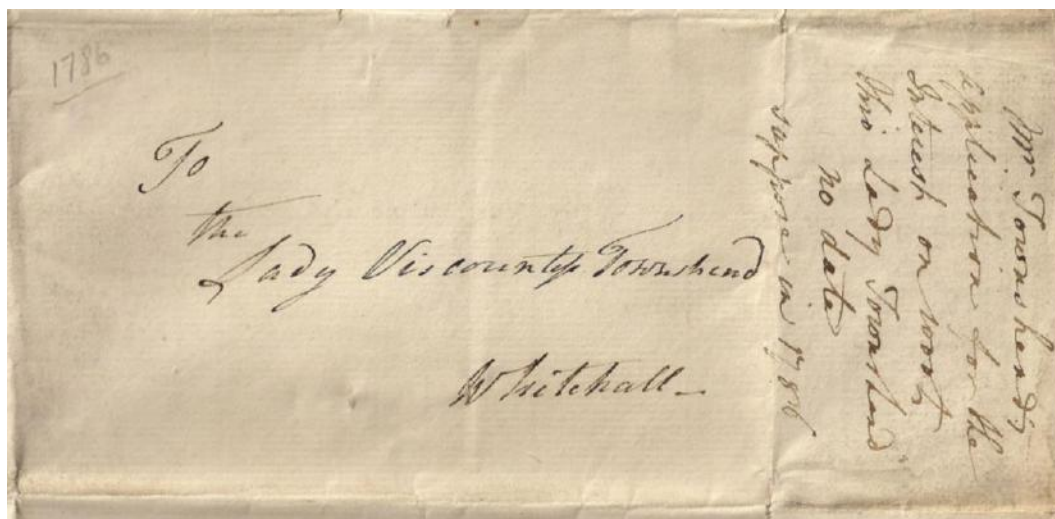 1786
To
the
Lady Viscountess Townshend
Whitehall
Mr Townshend's
application for the
Interest on 1000£
thro Lady Townshend
no date
suppose in 1786